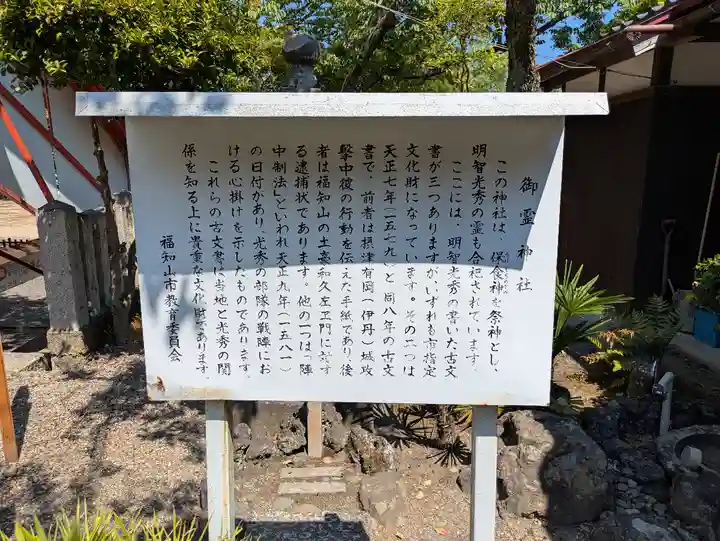 御霊神社
この神社は、保食神を祭神とし、
明智光秀の霊も合祀されています。
ここには、明智光秀の書いた古文
書が三つありますが、いずれも市指定
文化財になっています。その二つは
天正七年(一五七九)と同八年の古文
書で、前者は摂津有岡(伊丹)城攻
撃中復の行動を伝えた手紙であり、後
者は福知山の土豪和久左ヱ門に対す
る逮捕状であります。他の一つは「陣
中制法」といわれ天正九年(一五八一)
の日付があり、光秀の部隊の戦陣にお
ける心掛けを示したものであります。
これらの古文書は当地と光秀の関
係を知る上に貴重な文化財であります。
福知山市教育委員会